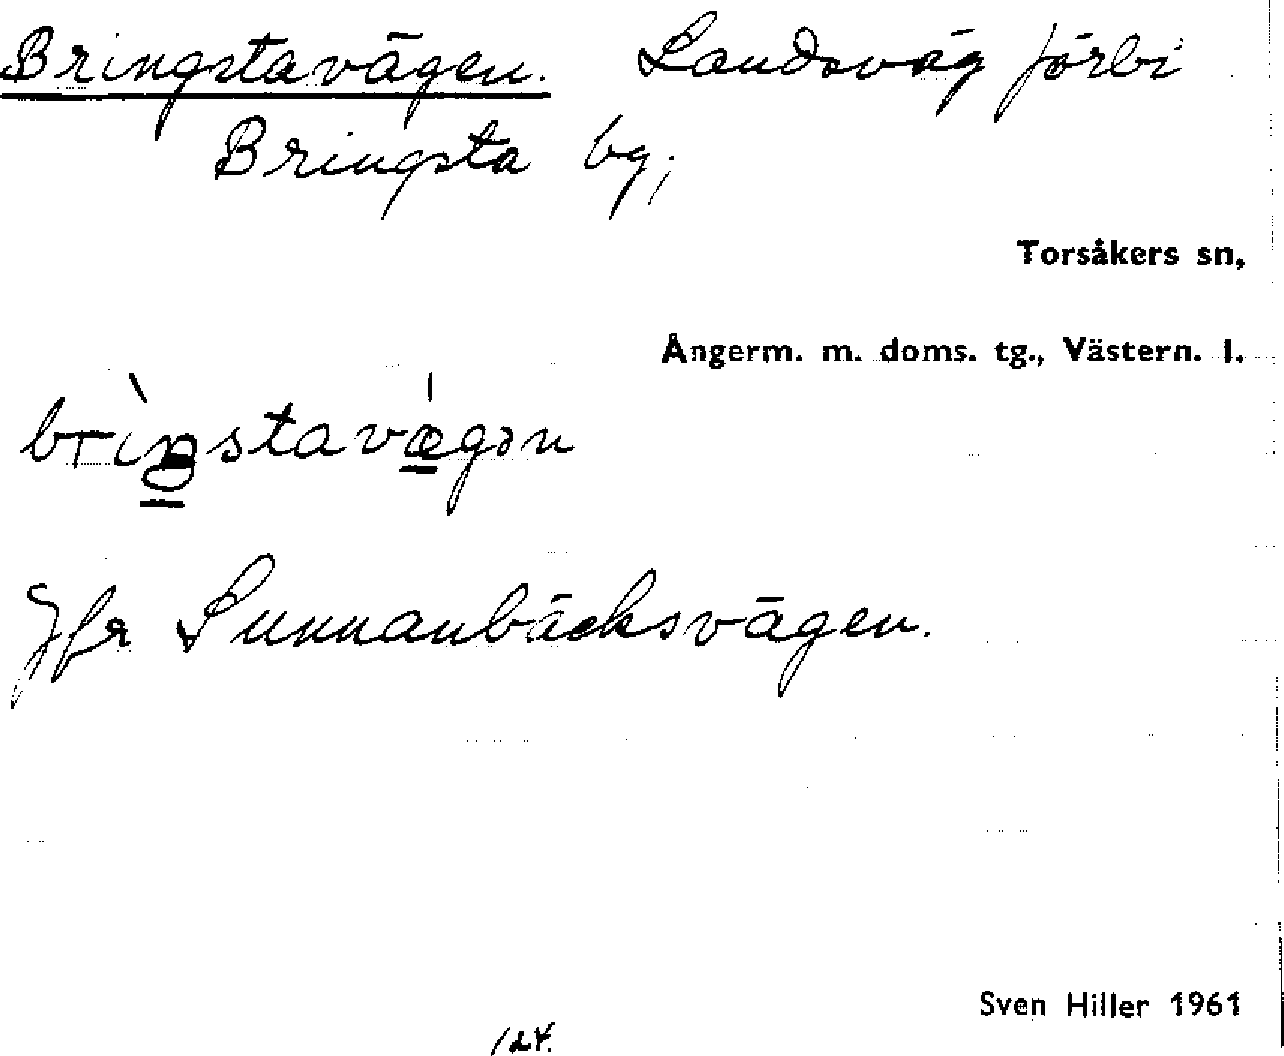 Bringstavägen. Landsväg förbi
Bringsta bg;
Torsåkers sn,
Ångerm. m. doms. tg., Västern. l.
brìŋstavǽgən
Jfr Sunnanbäcksvägen.
Sven Hiller 1961
124.